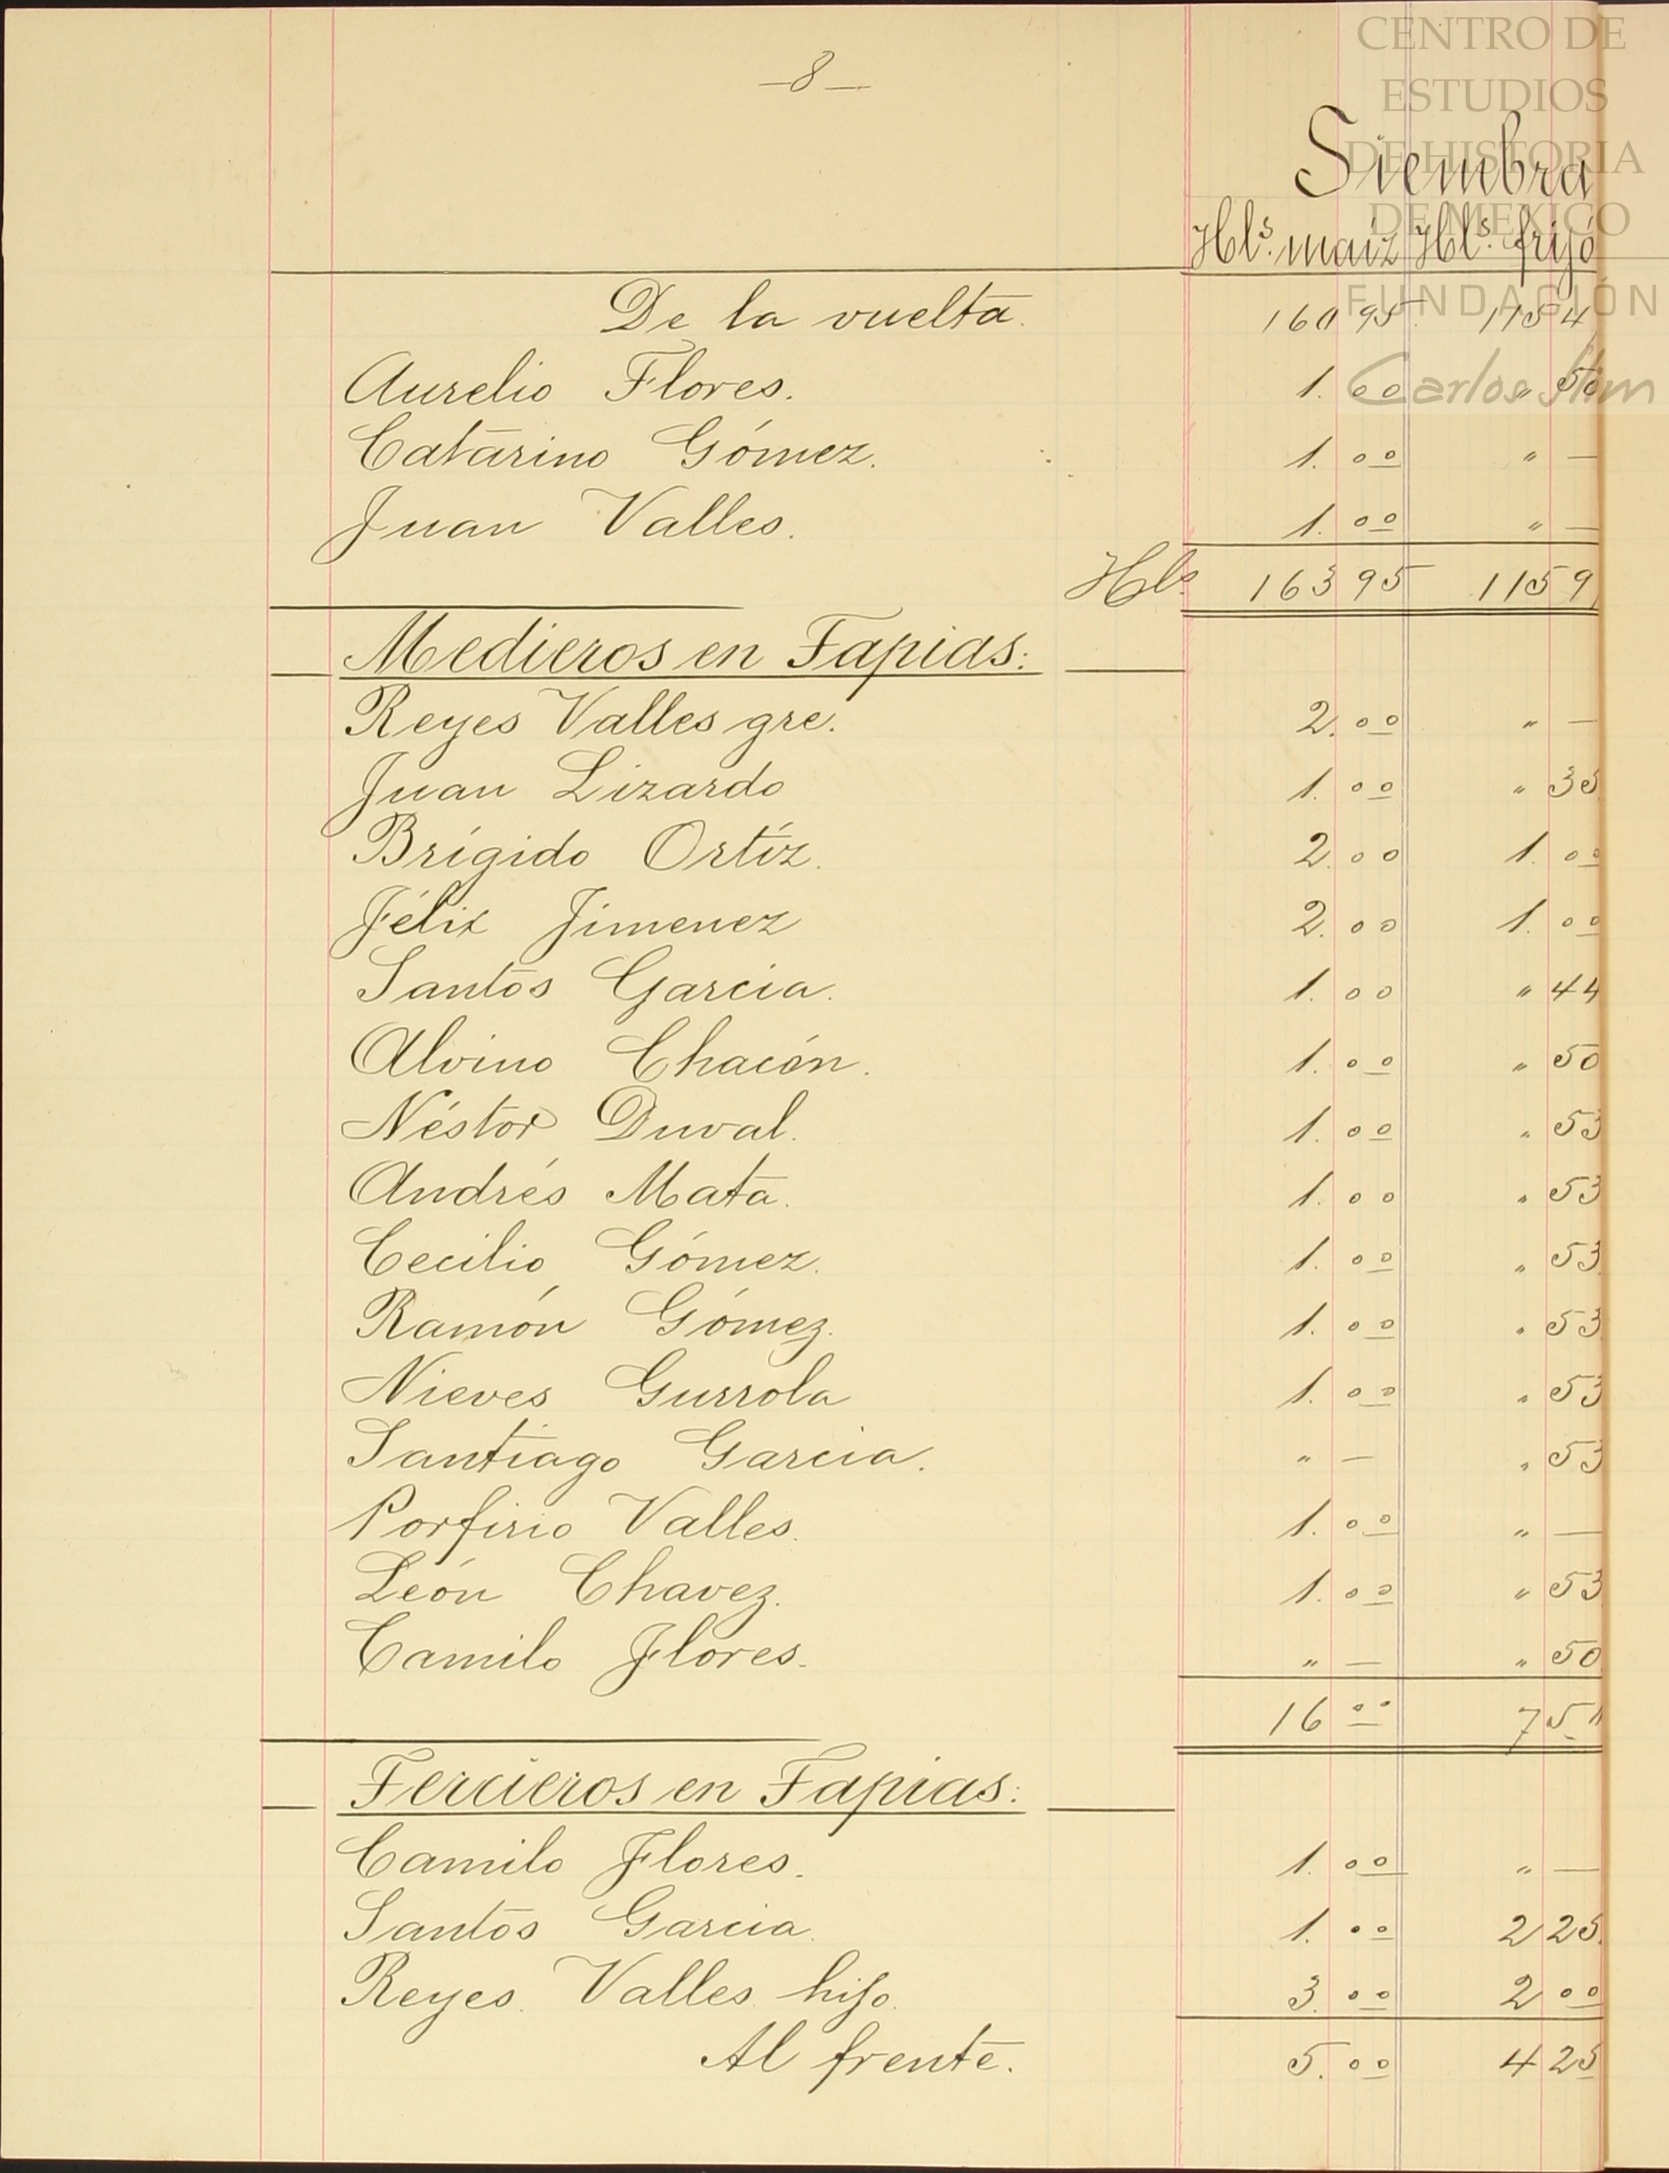 —8—
CENTRO DE
ESTUDIOS
DE HISTORIA
DE MEXICO
FUNDACIÓN
Carlos Slim
Siembra
Hls. maíz Hls. frijo
De la vuelta. 160 95 115 4
Aurelio Flores. 1. 00 " 50
Catarino Gómez. 1. 00 " —
Juan Valles. 1. 00 " —
Hls. 163 95 115 9
Medieros en Tapias:
Reyes Valles gre. 2. 00 " —
Juan Lizardo 1. 00 " 35
Brígido Ortíz. 2. 00 1. 00
Félix Jimenez 2. 00 1. 00
Santos Garcia. 1. 00 " 44
Alvino Chacón. 1. 00 " 50
Néstor Duval. 1. 00 " 53
Andrés Mata. 1. 00 " 53
Cecilio Gómez. 1. 00 " 53
Ramón Gómez. 1. 00 " 53
Nieves Gurrola 1. 00 " 53
Santiago Garcia. " — " 53
Porfirio Valles. 1. 00 " —
León Chavez. 1. 00 " 53
Camilo Flores. " — " 50
16 00 7 51
Tercieros en Tapias:
Camilo Flores. 1. 00 " —
Santos Garcia. 1. 00 2 25
Reyes Valles hijo. 3. 00 2 00
Al frente. 5. 00 4 25